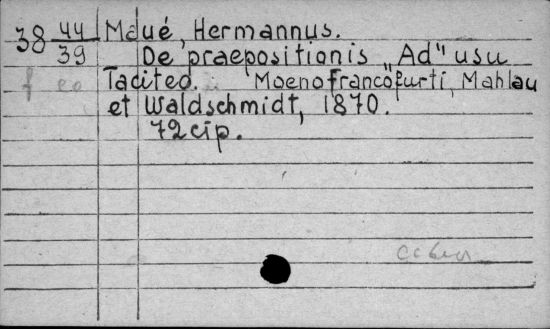 38 44/39 Maué, Hermannus.
De praepositionis „Ad" usu
Taciteo. Moenofrancofurti, Mahlau
et Waldschmidt, 1870.
72 cip.